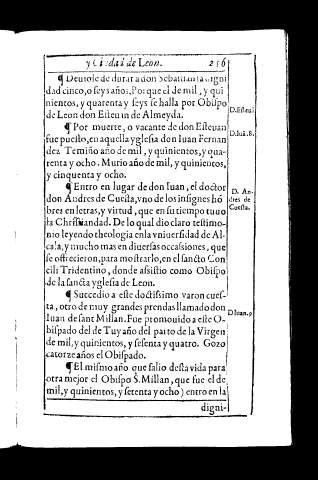 y Ciudad de Leon. 236
¶ Deuiose de durar a don Sebastian la digni
dad cinco, o seys años, Porque el de mil, y qui
nientos, y quarenta y seys se halla por Obispo
de Leon don Esteuan de Almeyda.
D. Esteuā
¶ Por muerte, o vacante de don Esteuan
fue puesto, en aquella yglesia don Iuan Fernan
D. Iuā. 8.
dez Temiño año de mil, y quinientos, y qua-
renta y ocho. Murio año de mil, y quinientos,
y cinquenta y ocho.
¶ Entro en lugar de don Iuan, el doctor
D. An-
don Andres de Cuesta, vno de los insignes hō
dres de
bres en letras, y virtud, que en su tiempo tuuo
Cuesta.
la Christiandad. De lo qual dio claro testimo-
nio leyendo theologia enla vniuersidad de Al-
cala, y mucho mas en diuersas occasiones, que
se offrecieron, para mostrarlo, en el sancto Con
cili Tridentino, donde assistio como Obispo
de la sancta yglesia de Leon.
¶ Succedio a este doctissimo varon cues-
ta, otro de muy grandes prendas llamado don
Iuan de sant Millan. Fue promouido a este O-
D. Iuan. 9
bispado del de Tuy año del parto de la Virgen
de mil, y quinientos, y sesenta y quatro. Gozo
catorze años el Obispado.
¶ El mismo año que salio desta vida para
otra mejor el Obispo S. Millan, que fue el de
mil, y quinientos, y setenta y ocho) entro en la
digni-